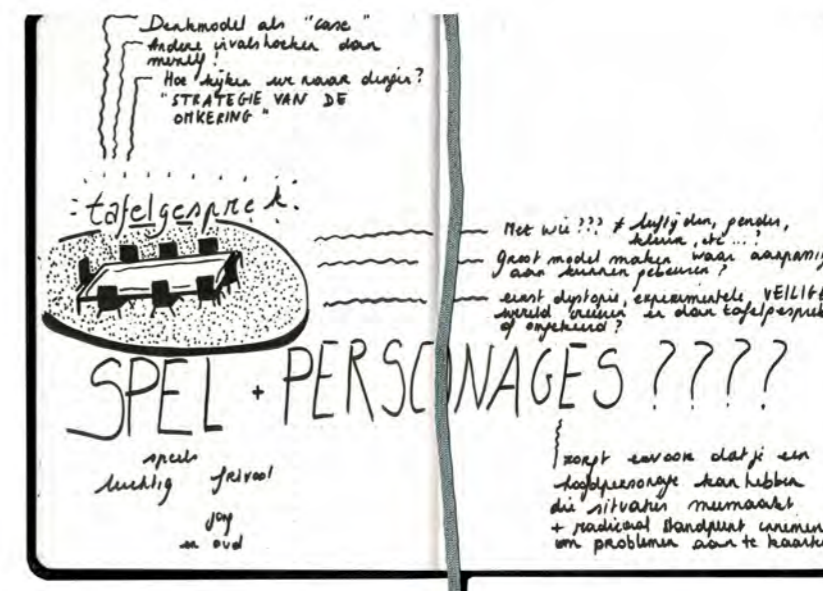 Denkmodel als "case"
Andere invalshoeken dan
merely!
Hoe kijken we naar dingen?
"STRATEGIE VAN DE
OMKERING"
tafelgesprek.
Met wie??? ≠ leeftijden, gender,
kleur, etc...?
groot model maken waar aanpassing
aan kunnen gebeuren?
eerst dystopie, experimentele VEILIGE
wereld creëren en dan tafelgesprek
of omgekeerd?
SPEL + PERSONAGES ????
speels
luchtig frivool
jong
en oud
zorgt ervoor dat je een
hoofdpersonage kan hebben
die situaties meemaakt
+ radicaal standpunt innemen
om problemen aan te kaarten